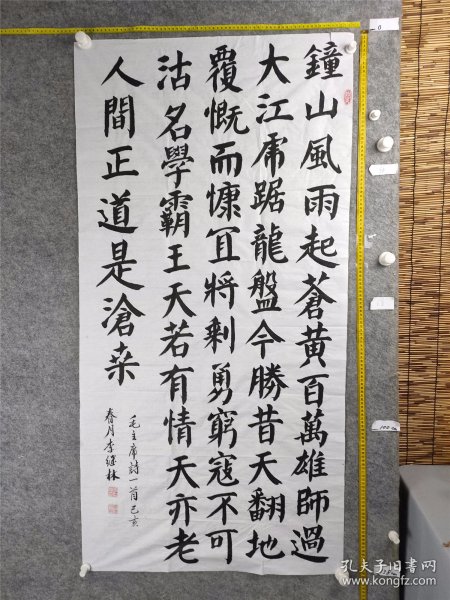 鐘山風雨起蒼黄百萬雄師過
大江虎踞龍盤今勝昔天翻地
覆慨而慷冝將剩勇窮寇不可
沽名學霸王天若有情天亦老
人間正道是滄桒
毛主席詩一首己亥
春月李继林
孔夫子旧书网
www.kongfz.com